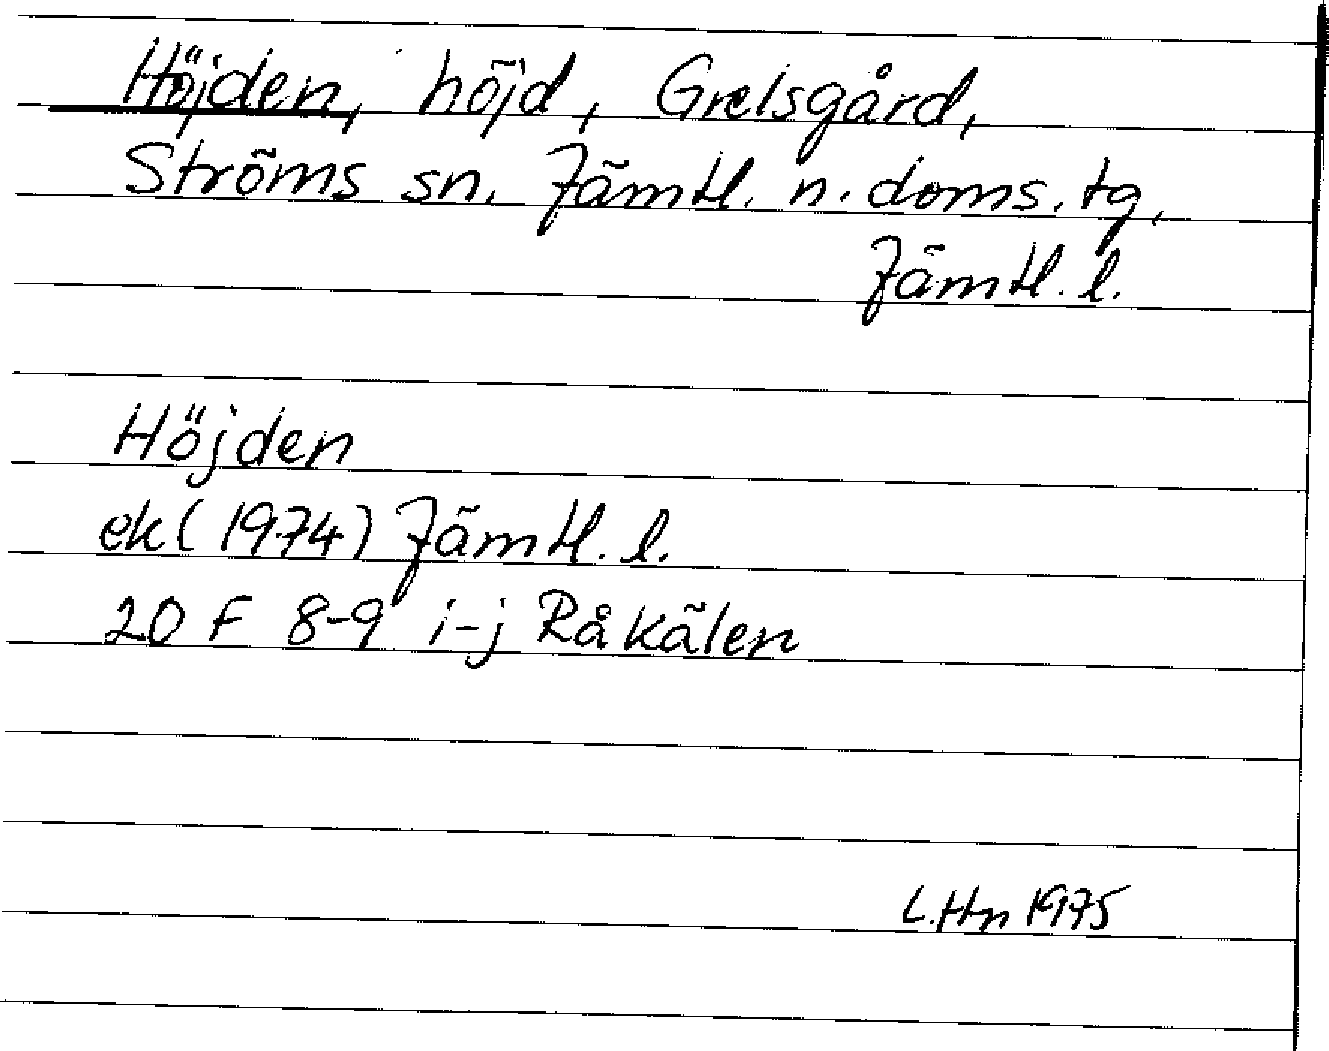 Höjden, höjd, Grelsgård,
Ströms sn. Jämtl. n. doms. tg,
Jämtl. l.
Höjden
ek (1974) Jämtl. l.
20 F 8-9 i-j Råkälen
L.Hn 1975